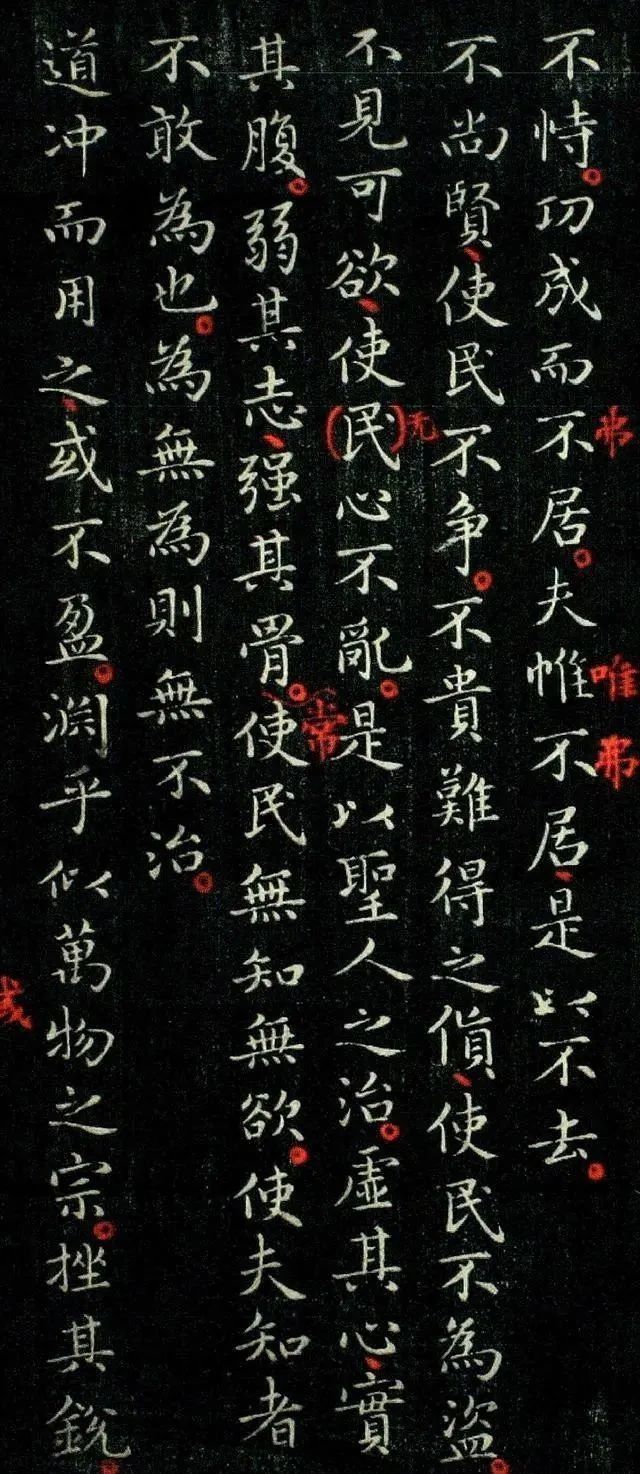 不恃。功成而不居。夫惟不居、是以不去。
弗
唯
弗
不尚賢、使民不争。不貴難得之貨、使民不為盗。
不見可欲、使(民)心不亂。是以聖人之治。虛其心、實
无
其腹。弱其志、强其骨。使民無知無欲。使夫知者
常
不敢為也。為無為則無不治。
道冲而用之、或不盈。渊乎似萬物之宗。挫其銳。
或